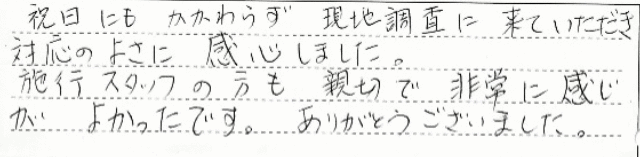 祝日にも かかわらず 現地調査に 来ていただき
対応のよさに 感心しました。
施行スタッフの方も 親切で 非常に感じ
が よかったです。 ありがとうございました。